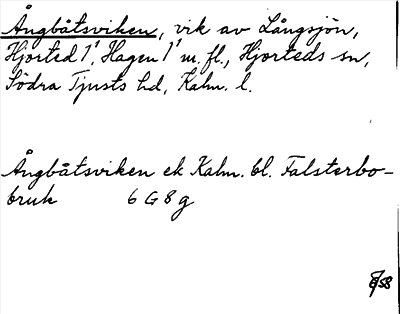 Ångbåtsviken, vik av Långsjön,
Hjorted 1¹, Hagen 1¹ m. fl., Hjorteds sn,
Södra Tjusts hd, Kalm. l.
Ångbåtsviken ek Kalm. bl. Falsterbo-
bruk 6 G 8 g